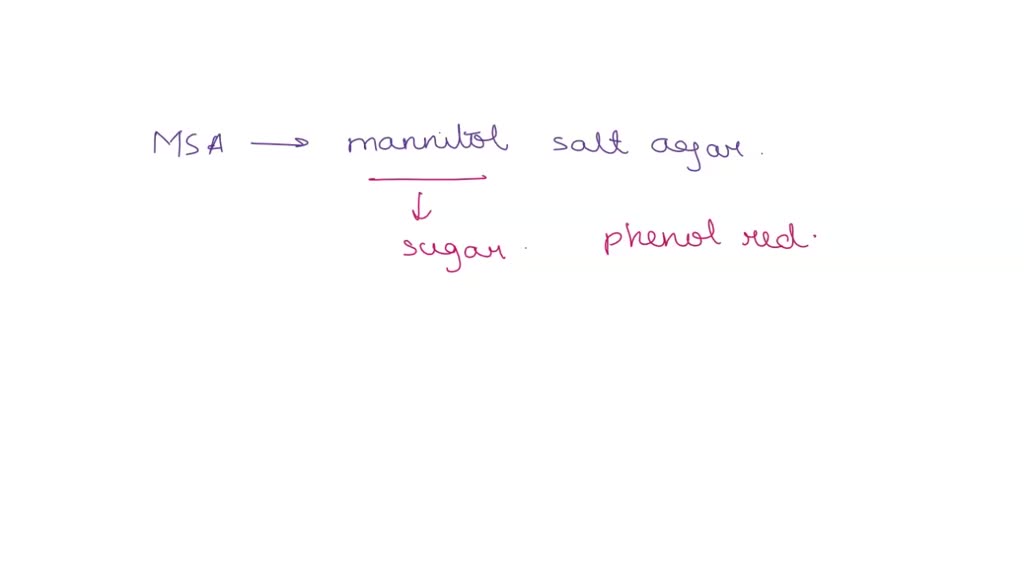 MSA → mannitol salt agar.
↓
sugar. phenol red.